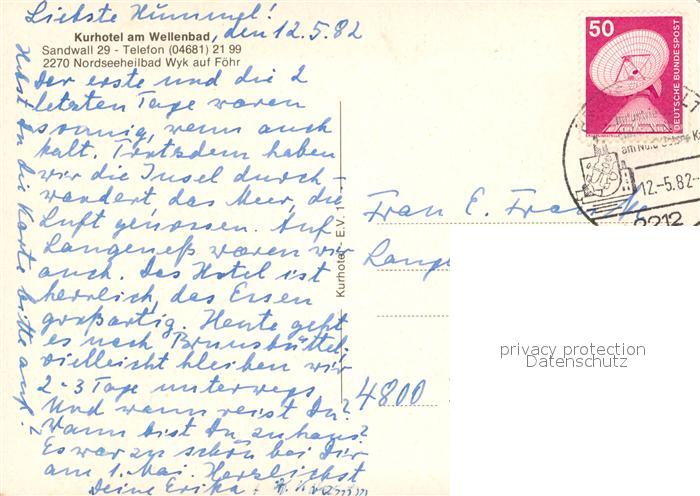 Liebste Hummel!
Kurhotel am Wellenbad, den 12.5.82
Sandwall 29 - Telefon (04681) 21 99
2270 Nordseeheilbad Wyk auf Föhr
Der erste und die 2
letzten Tage waren
sonnig, wenn auch
kalt. Trotzdem haben
wir die Insel durch-
wandert das Meer, die
Luft genossen. Auf
Langeneß waren wir
auch. Das Hotel ist
herrlich, das Essen
großartig. Heute geht
es nach Brunsbüttel.
vielleicht bleiben wir
2-3 Tage unterwegs
Und wann reist Du?
Wann bist Du zu haus?
Es war zu schön bei Dir
am 1. Mai. Herzlichst
Deine Erika
Hebst Du die Karte bitte auf?
Kurhotel - E.V. 1
50
DEUTSCHE BUNDESPOST
am Nord-Ostsee-K
12.-5.82-
2212
Frau E.
Lange
4800
privacy protection
Datenschutz